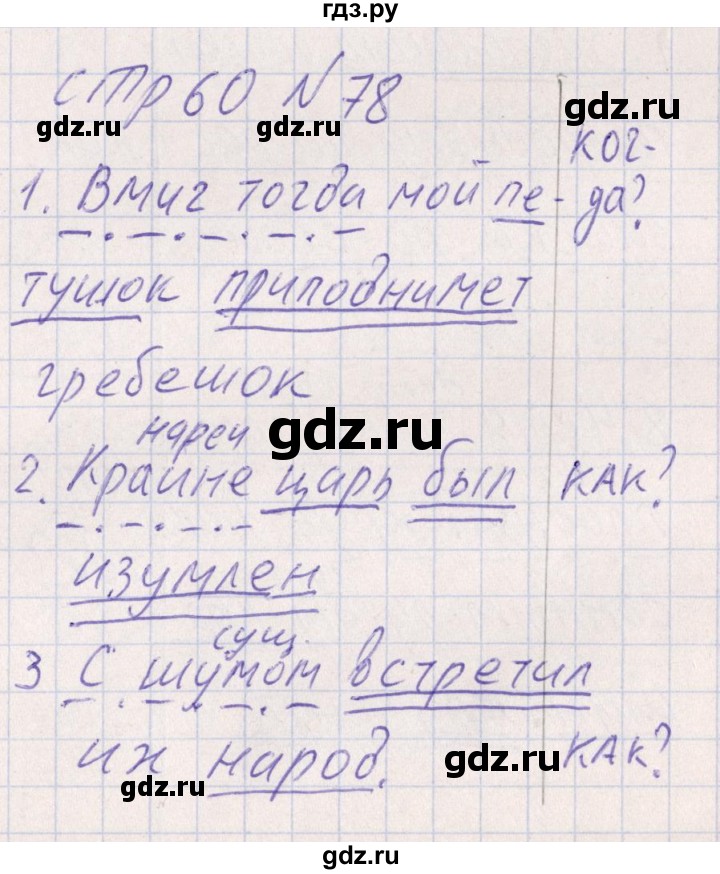 гдз.ру
стр 60 № 78
gdz.ru gdz.ru gdz.ru
ког-
1. Вмиг тогда мой пе- да?
тушок приподнимет
гребешок
gdz.ru
нареч
2. Крайне царь был как?
изумлен
сущ.
3 С шумом встретил
их народ. как?
gdz.ru gdz.ru
gdz.ru